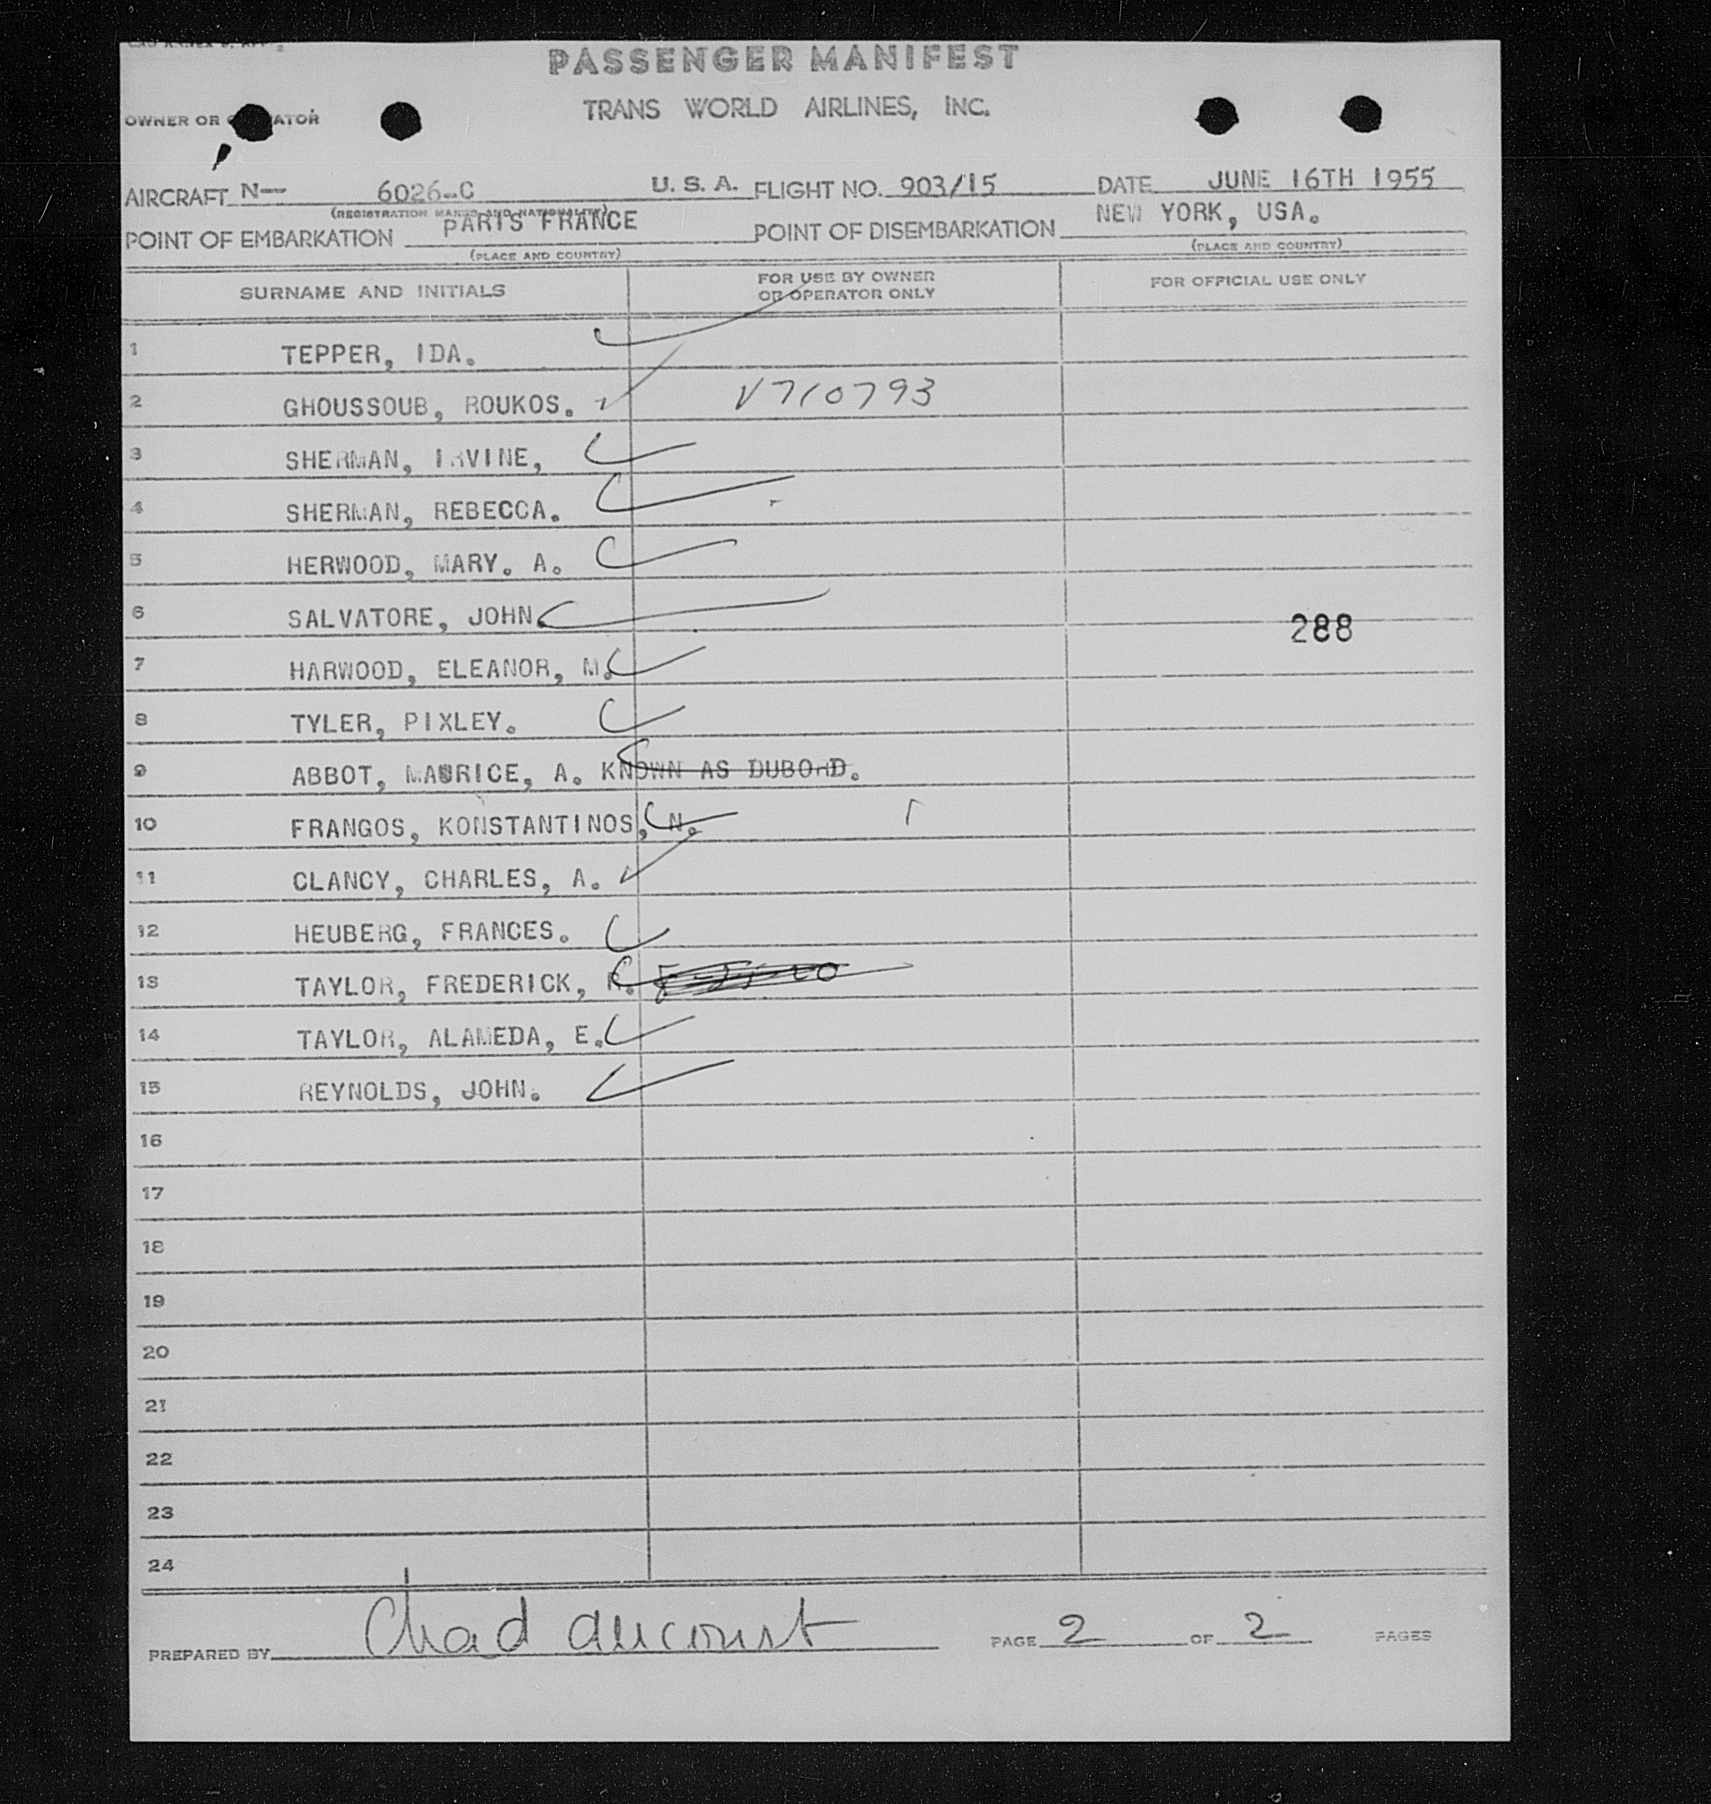 PASSENGER MANIFEST
TRANS WORLD AIRLINES, INC.
OWNER OR OPERATOR
AIRCRAFT N— 6026-C U.S.A. FLIGHT NO. 903/15 DATE JUNE 16TH 1955
(REGISTRATION MARKS AND NATIONALITY)
POINT OF EMBARKATION PARIS FRANCE POINT OF DISEMBARKATION NEW YORK, USA.
(PLACE AND COUNTRY) (PLACE AND COUNTRY)
SURNAME AND INITIALS FOR USE BY OWNER OR OPERATOR ONLY FOR OFFICIAL USE ONLY
1 TEPPER, IDA.
2 GHOUSSOUB, ROUKOS. V710793
3 SHERMAN, IRVINE,
4 SHERMAN, REBECCA.
5 HERWOOD, MARY. A.
6 SALVATORE, JOHN. 288
7 HARWOOD, ELEANOR, M.
8 TYLER, PIXLEY.
9 ABBOT, MAURICE, A. KNOWN AS DUBORD.
10 FRANGOS, KONSTANTINOS, N.
11 CLANCY, CHARLES, A.
12 HEUBERG, FRANCES.
13 TAYLOR, FREDERICK, R.
14 TAYLOR, ALAMEDA, E.
15 REYNOLDS, JOHN.
16
17
18
19
20
21
22
23
24
PREPARED BY Chad aucourt PAGE 2 OF 2 PAGES